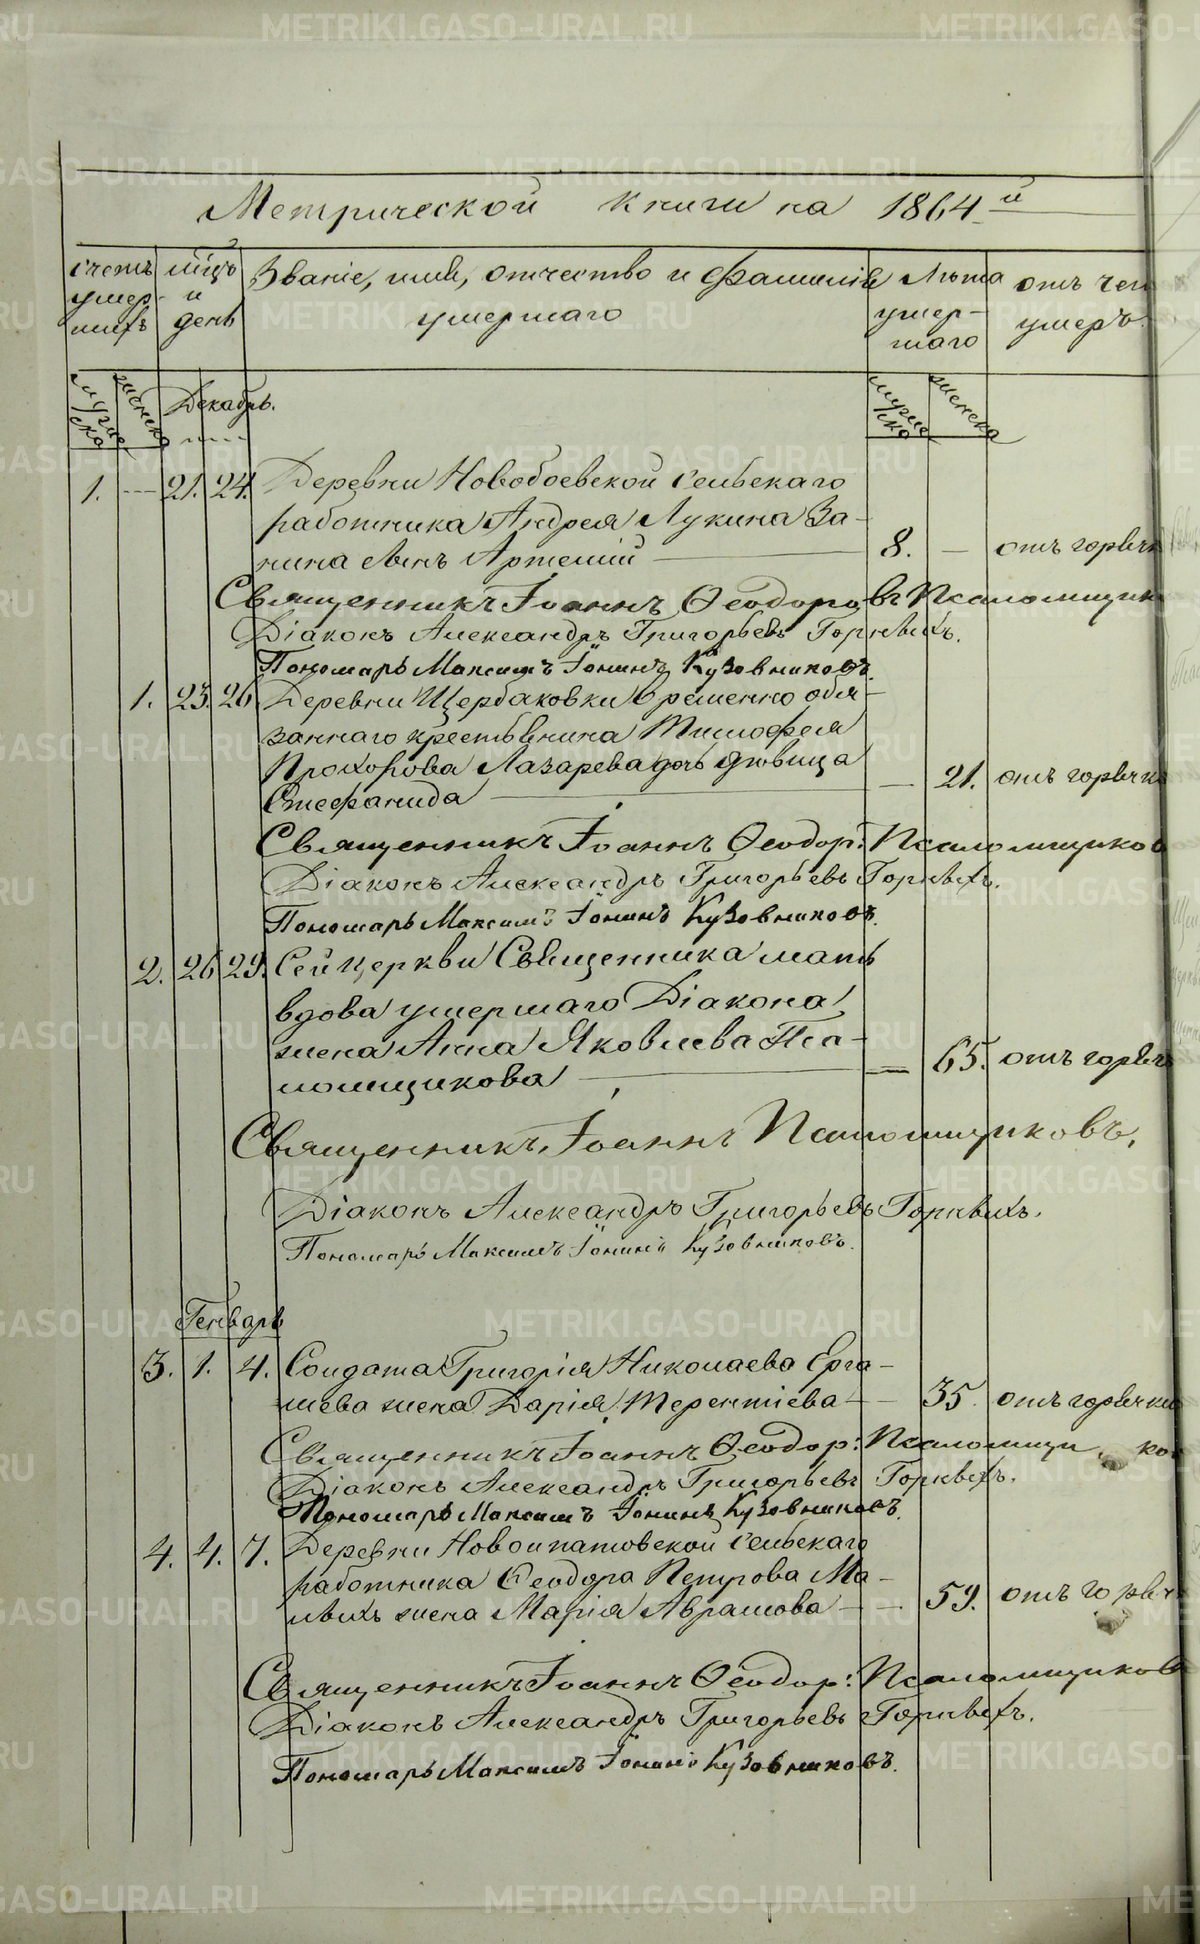 Метрической книги на 1864й
Счетъ умер-шихъ
мѣцъ и день
Званіе, имя, отчество и фамилія умершаго
Лѣта умер-шаго
отъ чего умеръ
мужеска
женска
Декабрь.
мужеска
женска
1. — 21. 24. Деревни Новобоевской сельскаго
работника Андрея Лукина За-
нина сынъ Артемій — 8. — отъ горячк
Священникъ Іоаннъ Ѳеодоровъ Псаломщик
Діаконъ Александръ Григорьевъ Горныхъ.
Пономарь Максимъ Іонинъ Кузовниковъ.
1. 23. 26 Деревни Щербаковки временно обя-
заннаго крестьянина Тимофея
Прохорова Лазарева дочь дѣвица
Стефанида — — 21. отъ горячк
Священникъ Іоаннъ Ѳеодор: Псаломщиков
Діаконъ Александръ Григорьевъ Горныхъ.
Пономарь Максимъ Іонинъ Кузовниковъ.
2. 26 29. Сей церкви Священника мать
вдова умершаго Діакона
жена Анна Яковлева Пса-
ломщикова — — 65. отъ горяч
Священникъ Іоаннъ Псаломщиковъ.
Діаконъ Александръ Григорьевъ Горныхъ.
Пономарь Максимъ Іонинъ Кузовниковъ.
Генварь
3. 1. 4. Солдата Григорія Николаева Ерга-
шева жена Дарія Терентіева — — 35. отъ горячки
Священникъ Іоаннъ Ѳеодор: Псаломщиков
Діаконъ Александръ Григорьевъ Горныхъ.
Пономарь Максимъ Іонинъ Кузовниковъ.
4. 4. 7. Деревни Новоипатовской сельскаго
работника Ѳеодора Петрова Ма-
лыхъ жена Марія Аврамова — — 59. отъ горяч
Священникъ Іоаннъ Ѳеодор: Псаломщиковъ
Діаконъ Александръ Григорьевъ Горныхъ.
Пономарь Максимъ Іонинъ Кузовниковъ.
METRIKI.GASO-URAL.RU